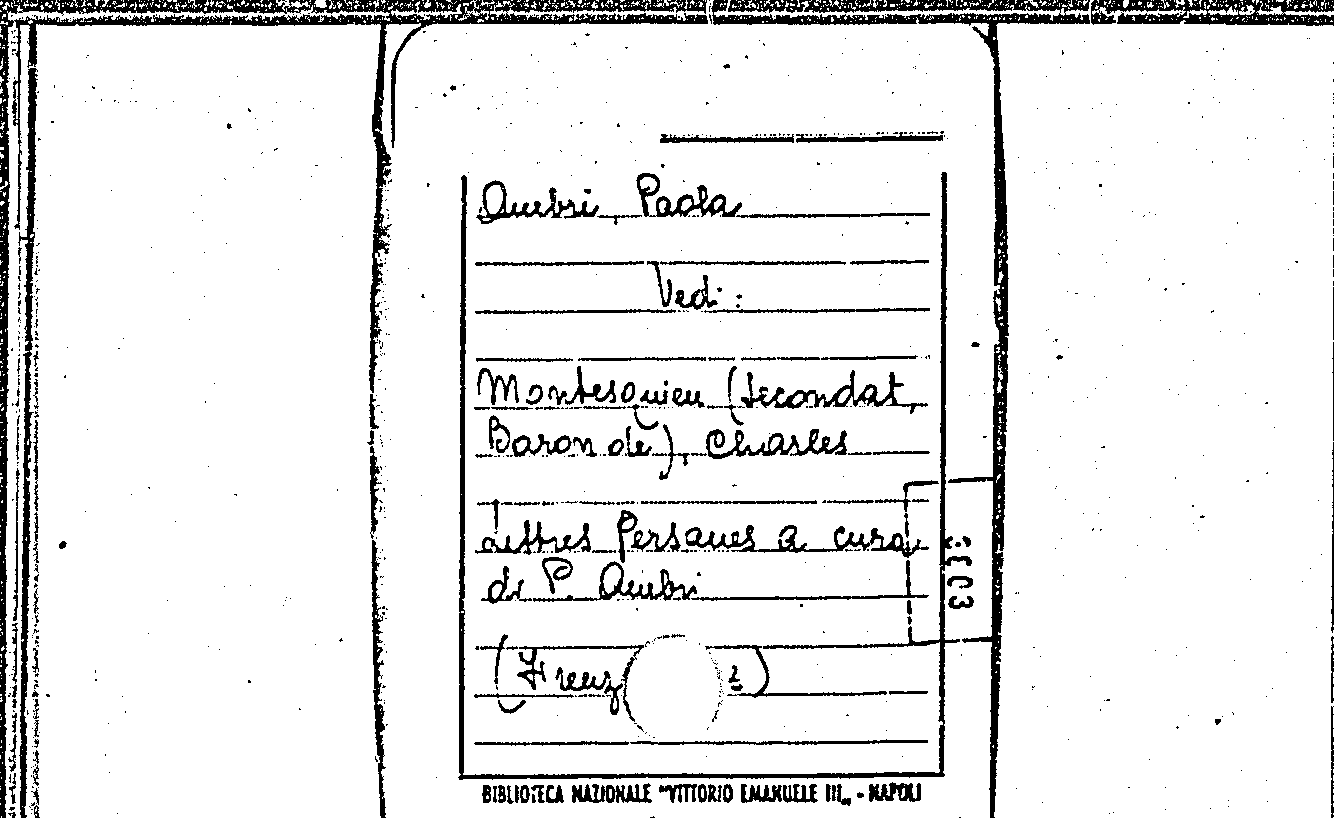 Ambri, Paola
Vedi:
Montesquieu (Secondat,
Baron de), Charles
Lettres Persanes a cura
di P. Ambri
BIBLIOTECA NAZIONALE "VITTORIO EMANUELE III„ - NAPOLI